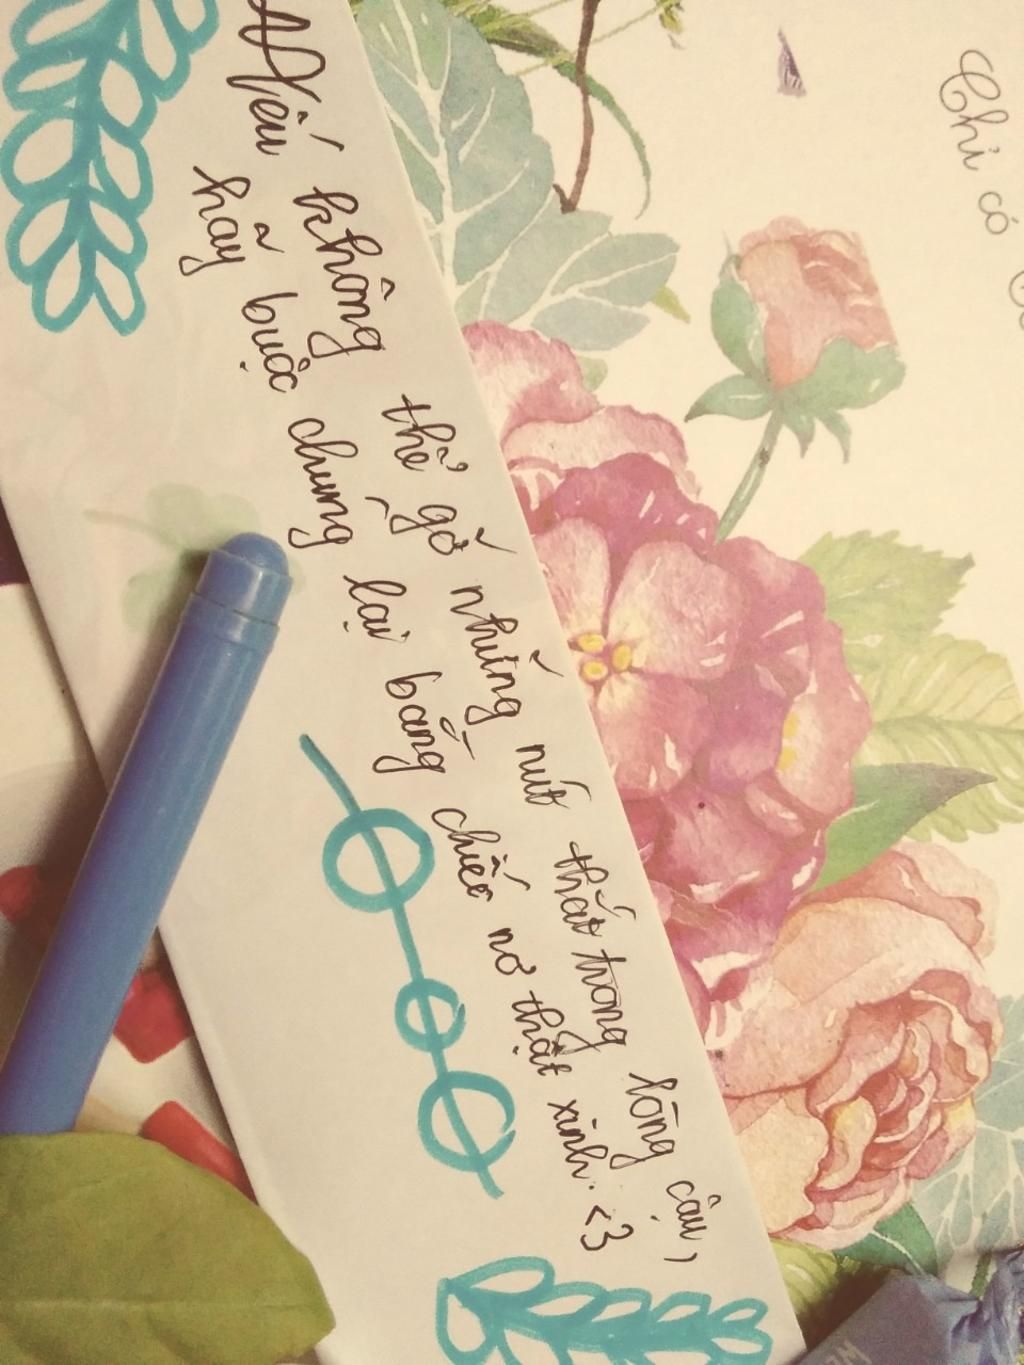 Nếu không thể gỡ những nút thắt trong lòng cậu,
hãy buộc chung lại bằng chiếc nơ thật xinh. <3
Chỉ có